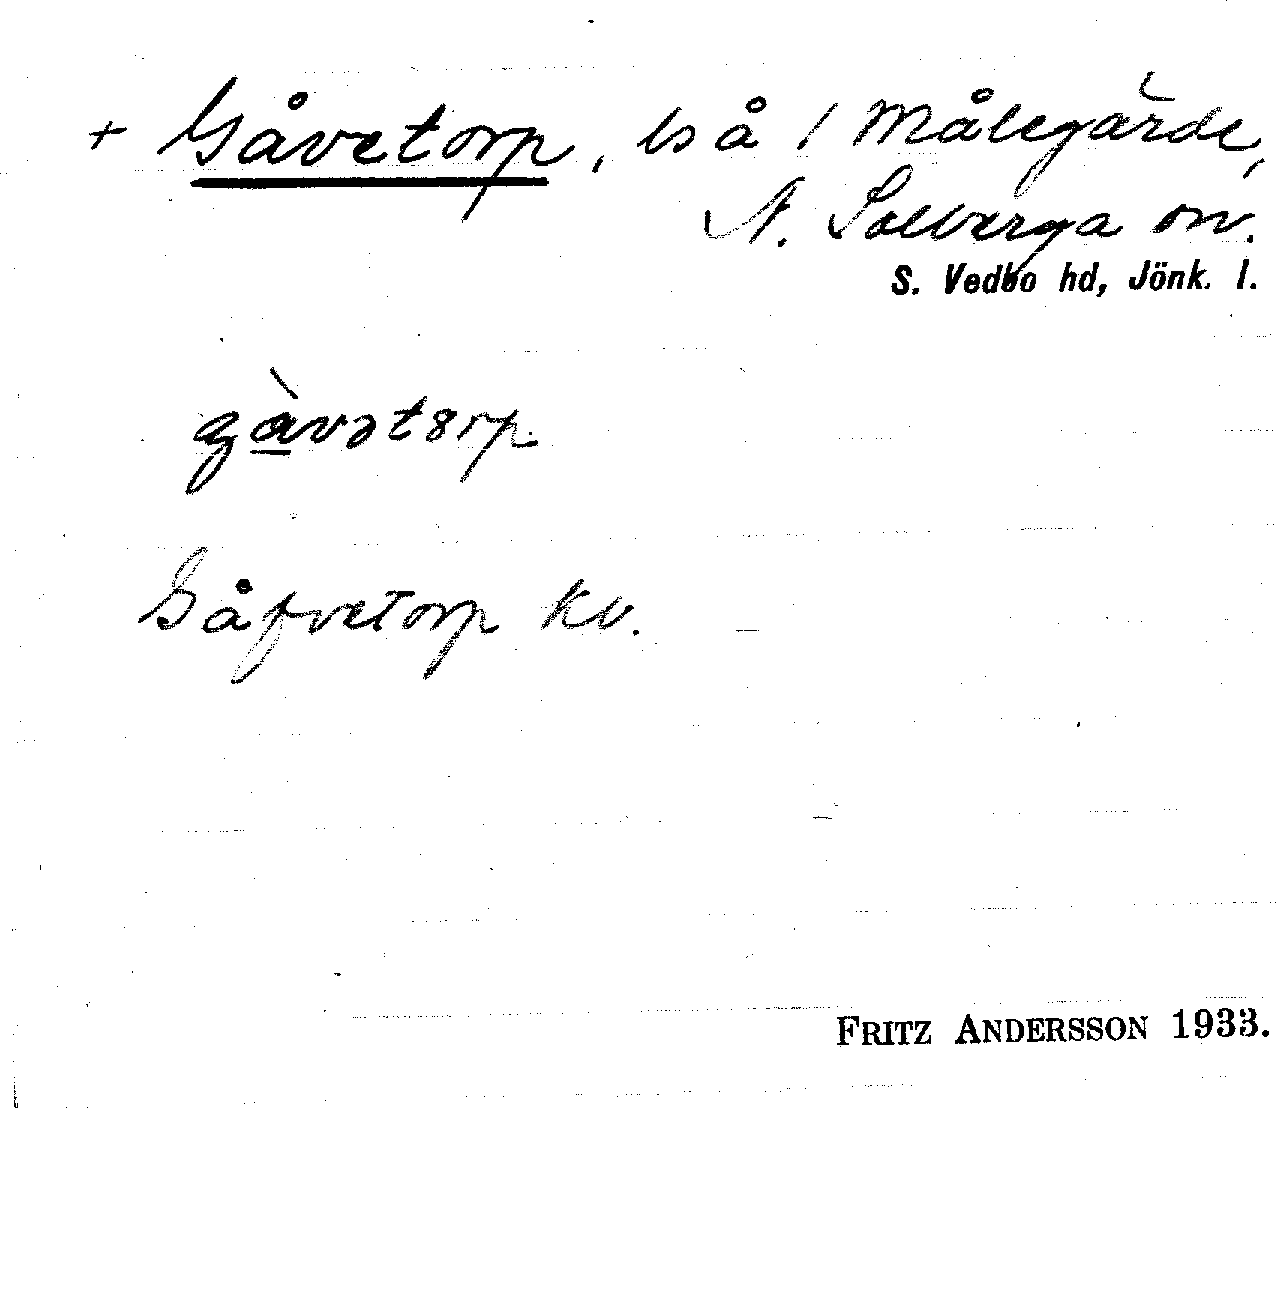 + Gåvetorp, ls å 1 Målegärde,
N. Solberga sn.
S. Vedbo hd, Jönk. l.
gàvətɵrp
Gåfvetorp kv.
FRITZ ANDERSSON 1933.